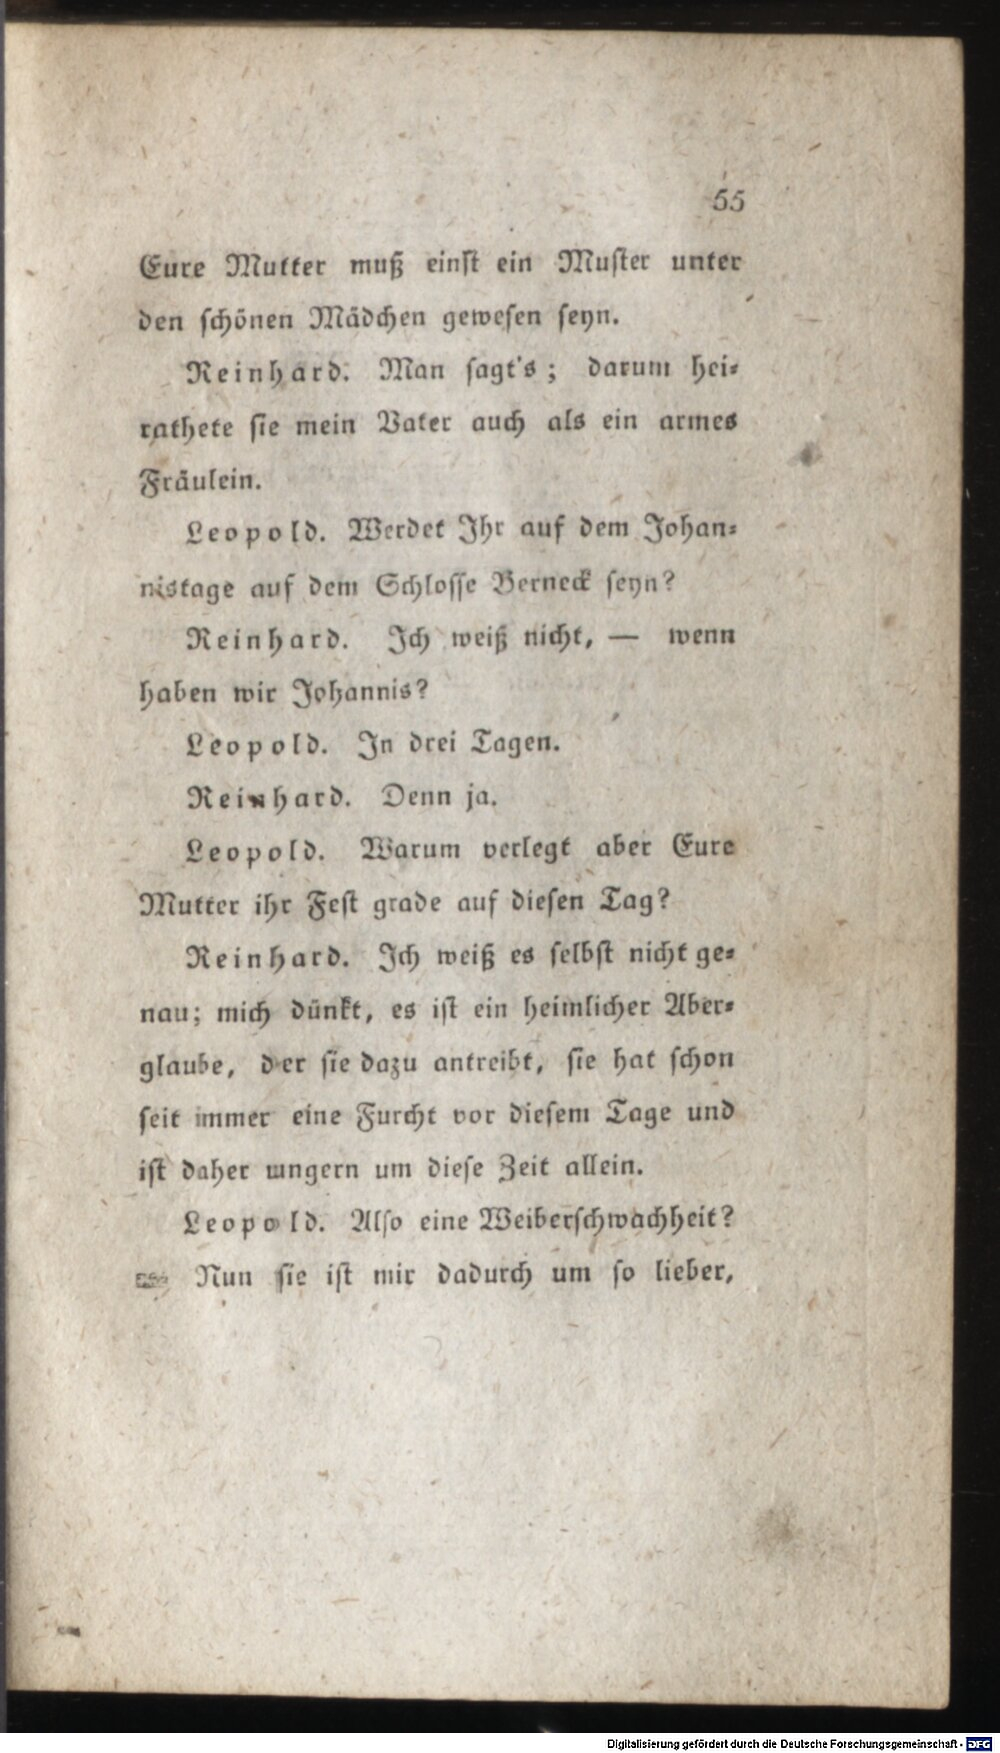 55
Eure Mutter muß einst ein Muster unter
den schönen Mädchen gewesen seyn.
Reinhard. Man sagt's; darum hei⸗
rathete sie mein Vater auch als ein armes
Fräulein.
Leopold. Werdet Ihr auf dem Johan⸗
nistage auf dem Schlosse Berneck seyn?
Reinhard. Ich weiß nicht, — wenn
haben wir Johannis?
Leopold. In drei Tagen.
Reinhard. Denn ja.
Leopold. Warum verlegt aber Eure
Mutter ihr Fest grade auf diesen Tag?
Reinhard. Ich weiß es selbst nicht ge⸗
nau; mich dünkt, es ist ein heimlicher Aber⸗
glaube, der sie dazu antreibt, sie hat schon
seit immer eine Furcht vor diesem Tage und
ist daher ungern um diese Zeit allein.
Leopold. Also eine Weiberschwachheit?
— Nun sie ist mir dadurch um so lieber,
Digitalisierung gefördert durch die Deutsche Forschungsgemeinschaft - DFG